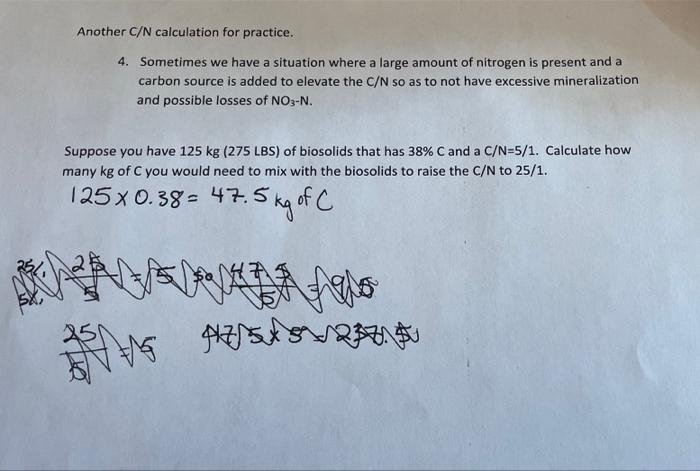 Another C/N calculation for practice.
4. Sometimes we have a situation where a large amount of nitrogen is present and a
carbon source is added to elevate the C/N so as to not have excessive mineralization
and possible losses of NO3-N.
Suppose you have 125 kg (275 LBS) of biosolids that has 38% C and a C/N=5/1. Calculate how
many kg of C you would need to mix with the biosolids to raise the C/N to 25/1.
125 x 0.38 = 47.5 kg of C